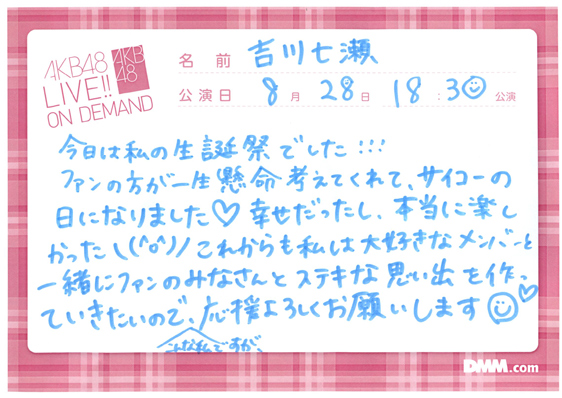 AKB48
LIVE!!
ON DEMAND
AKB
48
名前 吉川七瀬
公演日 8月28日 18:30公演
今日は私の生誕祭でした!!!
ファンの方が一生懸命考えてくれて、サイコーの
日になりました♡ 幸せだったし、本当に楽し
かったし\(^o^)/これからも私は大好きなメンバーと
一緒にファンのみなさんとステキな思い出を作っ
ていきたいので、応援よろしくお願いします
こんな私ですが、
DMM.com